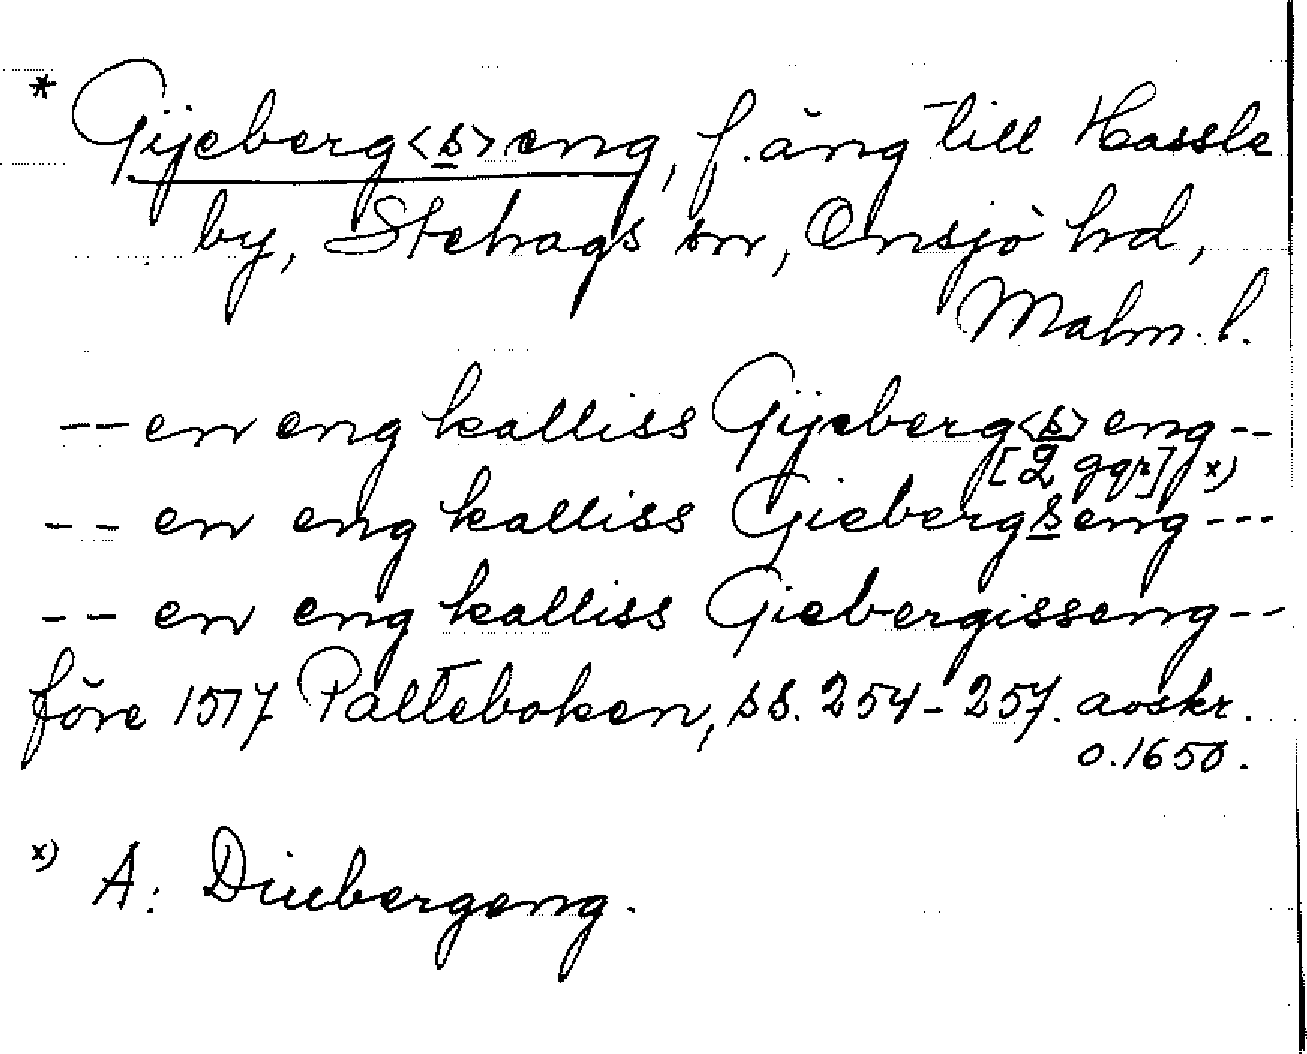 * Gijeberg<s>eng, f. äng till Hassle
by, Stehags sn, Onsjö hd,
Malm. l.
-- en eng kalliss Gijeberg<s>eng --
[2 ggr] x)
-- en eng kalliss Giebergseng ---
-- en eng kalliss Giebergisseng --
före 1517 Palteboken, ss. 254-257. avskr.
o. 1650.
x) A: Diubergeng.